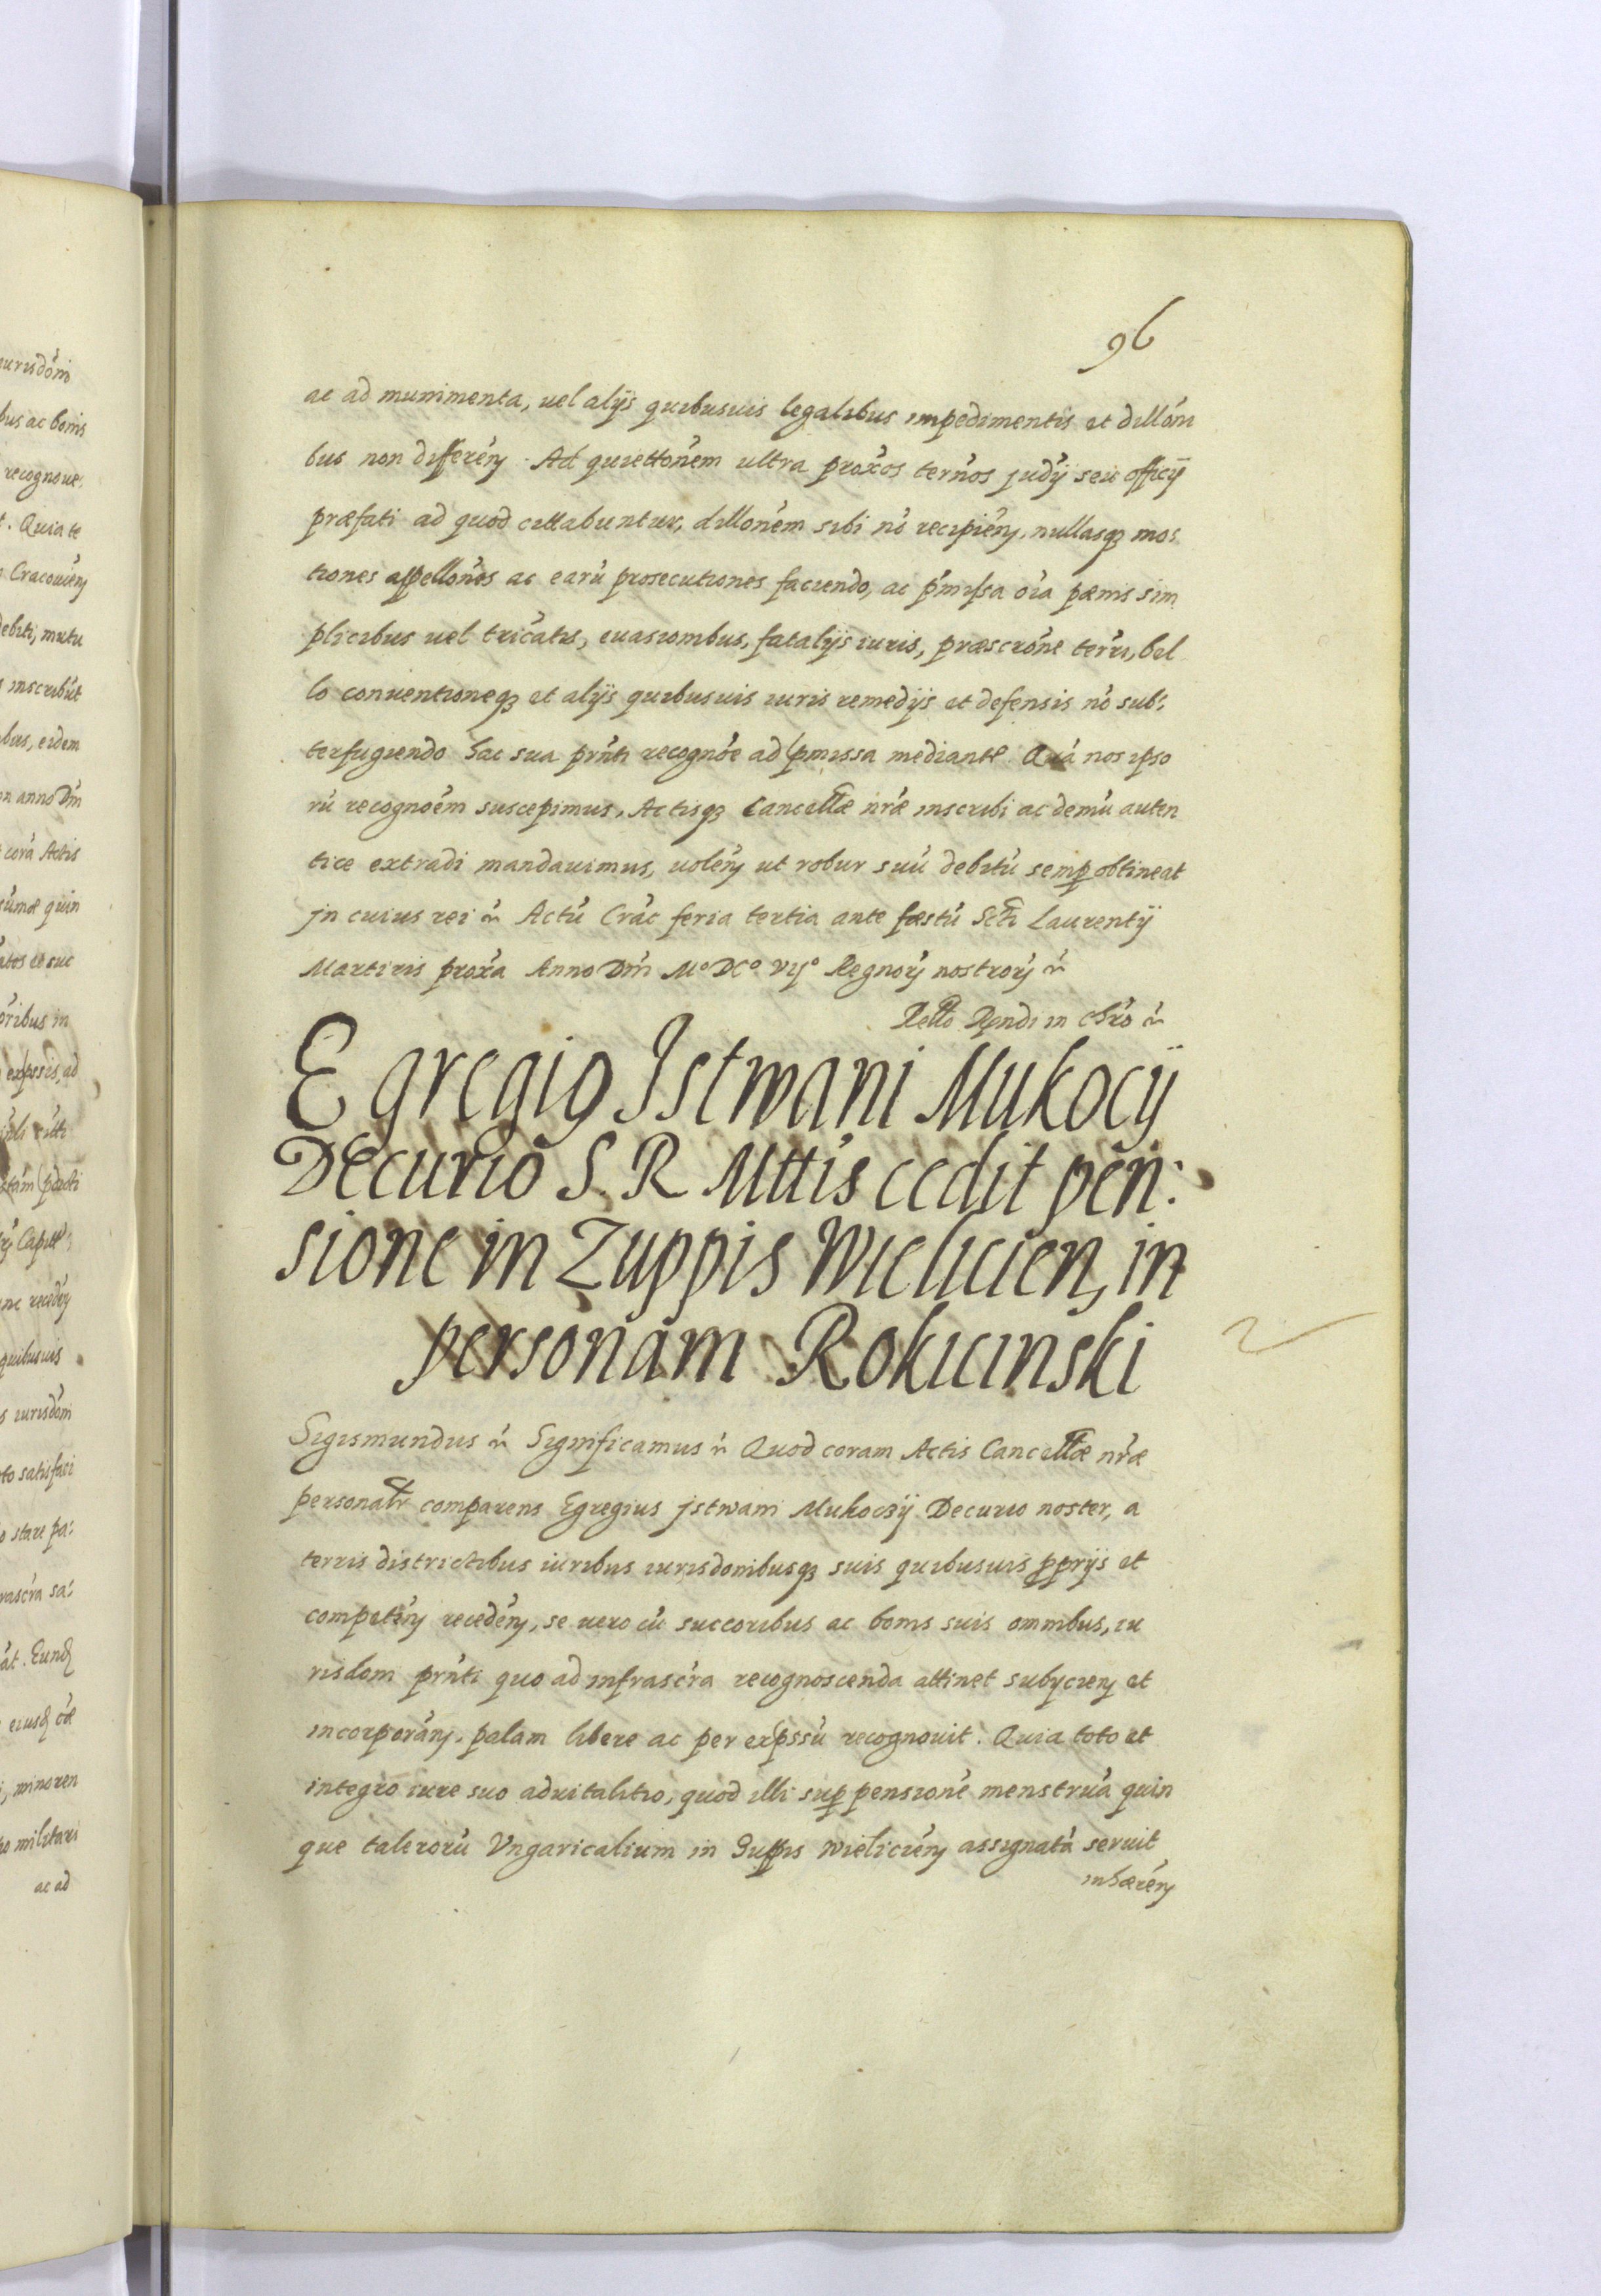 96
ac ad munimenta, uel alijs quibusuis legalibus impedimentis et dillóni
bus non differéń. Ad quiettońem ultra prox́os terńos judÿ seu officÿ
præfati ad quod cittabuntur, dillońem sibi nó recipiéń, nullasqȝ mo:
tiones appellońes ac earú prosecutiones faciendo, ac pŕmissa oía pænis sim
plicibus uel tricátis, euasionibus, fatalijs iuris, præscróne terŕi, bel
lo conuentioneqȝ et alijs quibusuis iuris remedijs et defensis nó sub:
terfugiendo hac sua prńti recognóe ad pmissa mediante. Quá nos ipso
rú recognoém suscepimus, Actisqȝ Cancellæ nŕæ inscribi ac demú auten
tice extradi mandauimus, uoléń ut robur suú debitú semp obtineat
jn cuius rei ń Actú Crác feria tertia ante fæstú Scti Laurentÿ
Martiris prox́a Anno Dńi M° DC° VIJ° Regnorý nostrorý ń
Rello Rendi in Chŕo ń
Egregio Istwani Mukocÿ
Decurio S. R Mttis cedit pen:
sione in Zuppis Wielicien, in
personam Rokicinski
Sigismundus ń Significamus ń Quod coram Actis Cancellæ nŕæ
personalr comparens Egregius jstwani Mukoczÿ Decurio noster, a
terris districtibus iuribus iurisdonibusqȝ suis quibusuis pprijs et
competéń recedéń, se uero cú succoribus ac bonis suis omnibus, iu
risdom prńti quo ad infrascŕa recognoscenda attinet subijcień et
incorporáń, palam libere ac per expssú recognouit. Quia toto et
integro iure suo aduitalitio, quod illi sup pensioné menstruá quin
que talerorú Vngaricalium in Zuppis Wieliciéń assignatá seruit
inhæréń